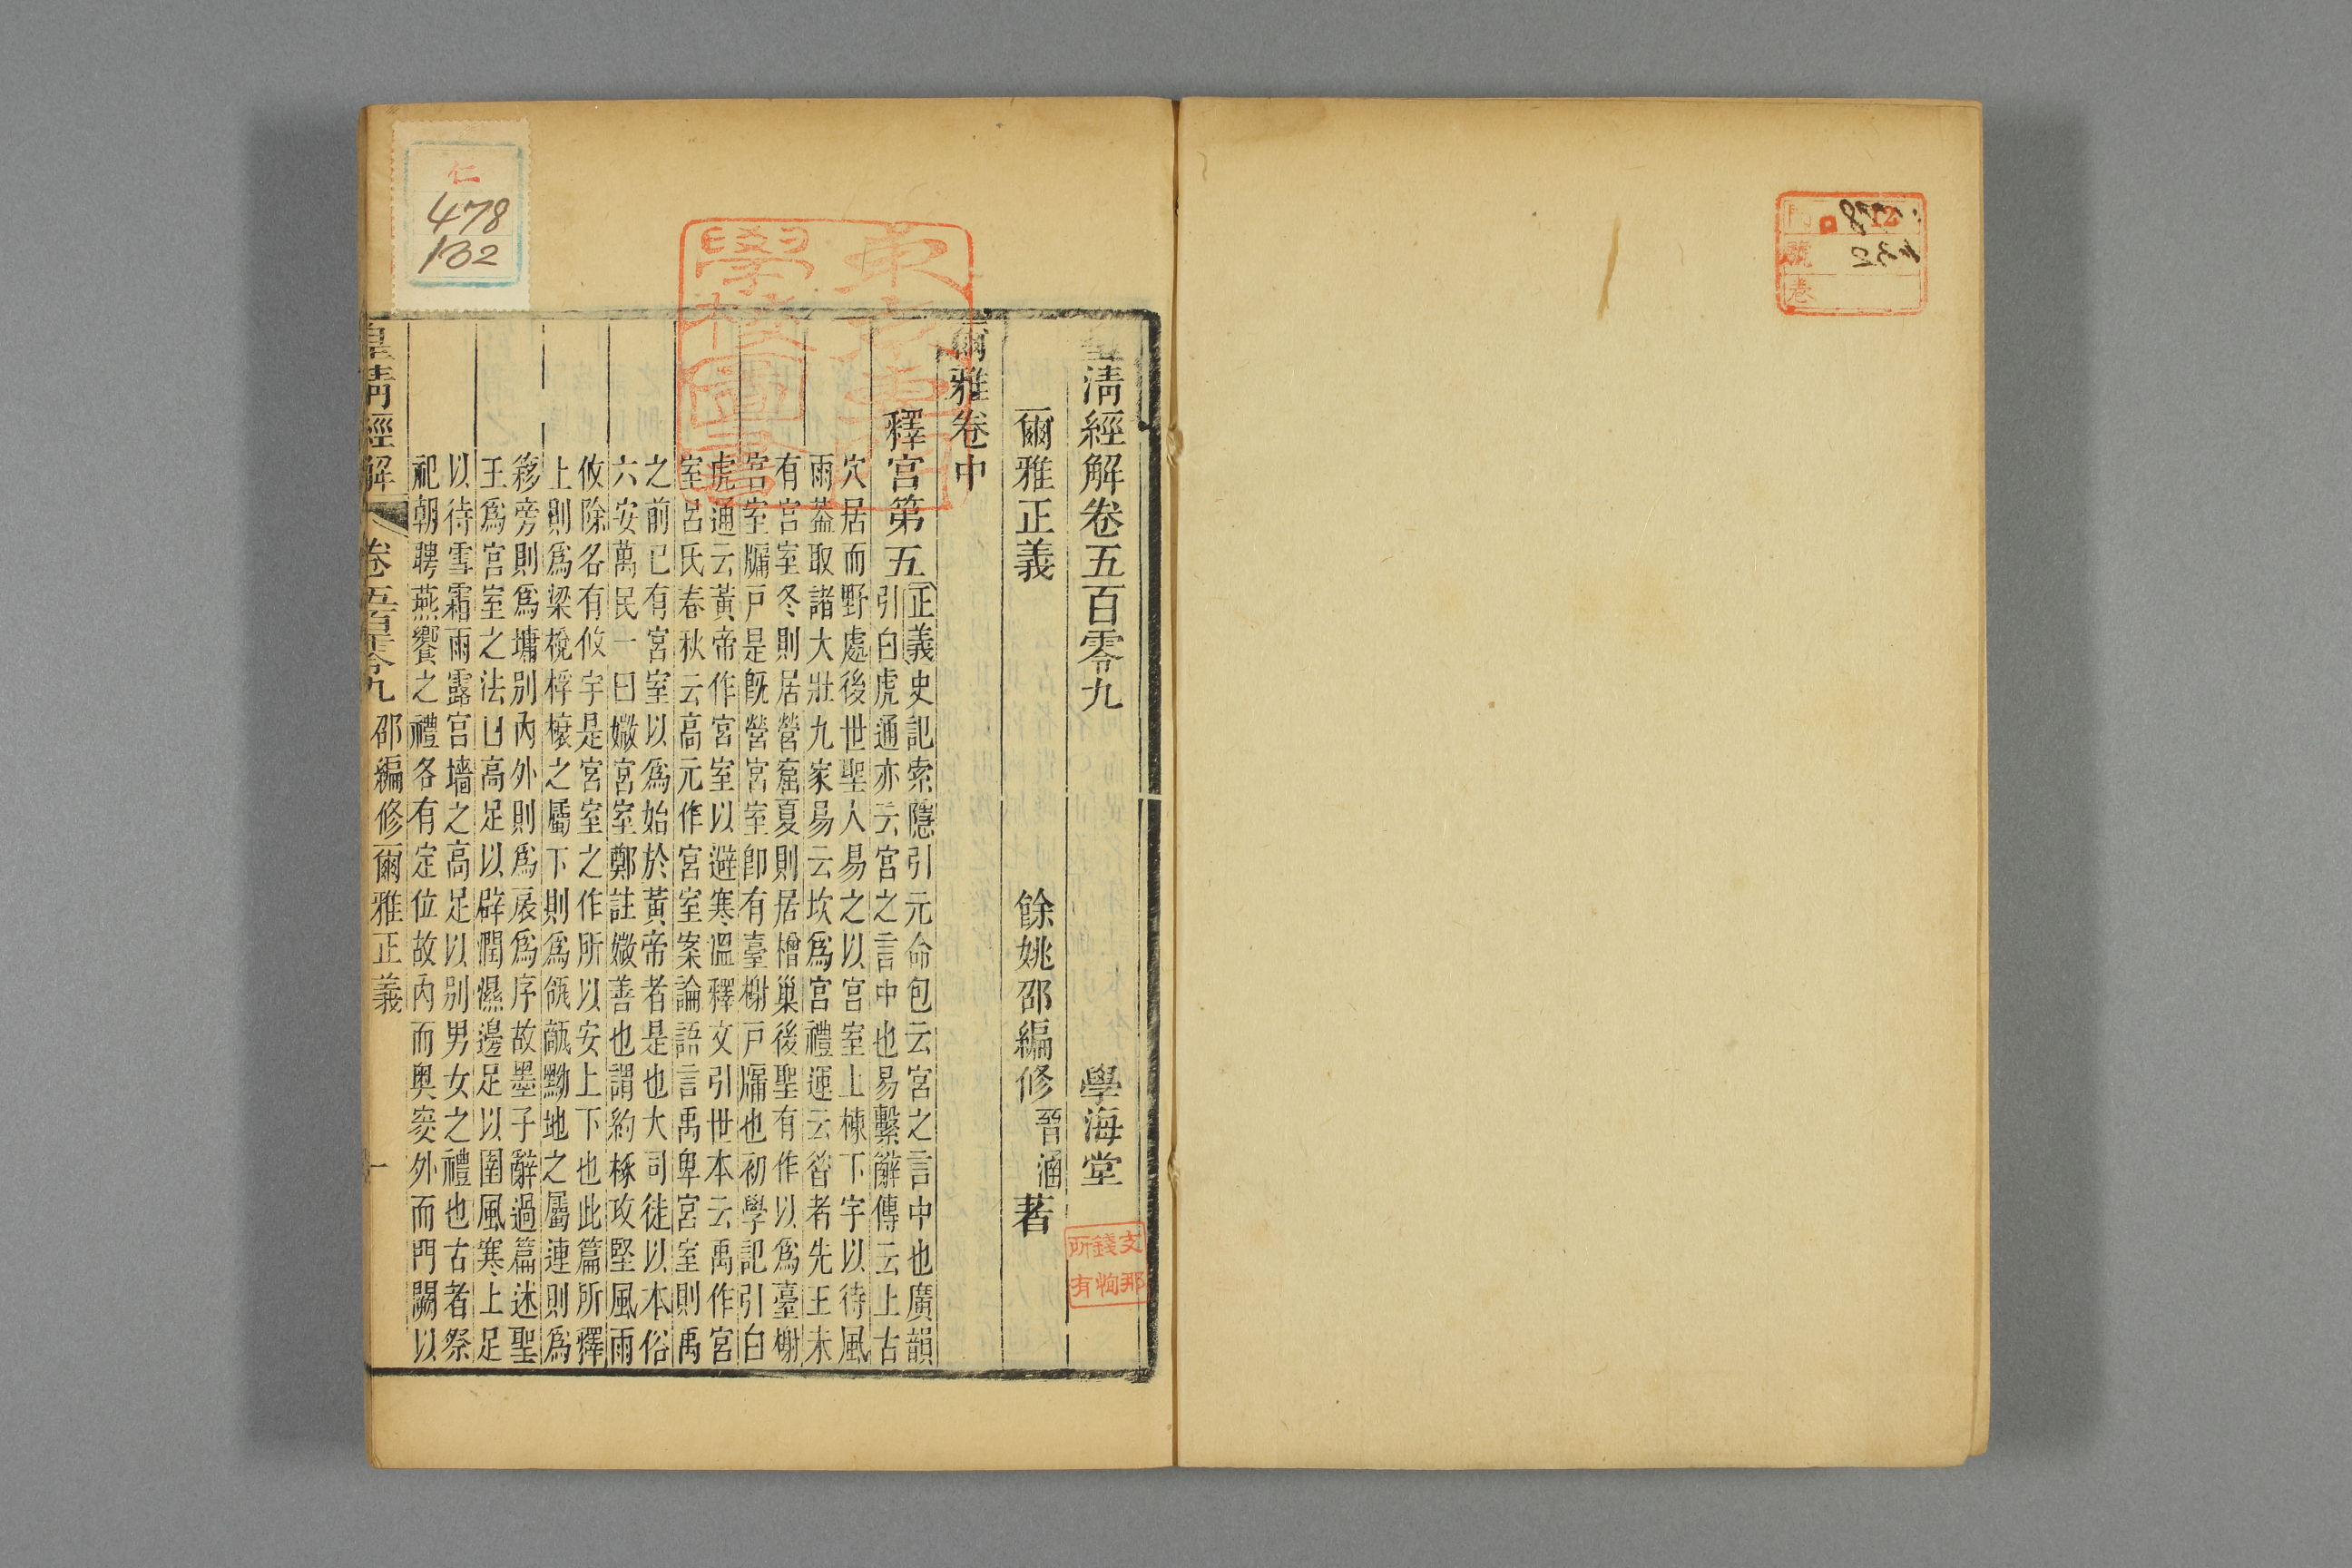 皇清經解卷五百零九
學海堂
爾雅正義
餘姚邵編修晉涵著
爾雅卷中
釋宮第五
正義史記索隱引元命包云宮之言中也廣韻
引白虎通亦云宮之言中也易繫辭傳云上古
穴居而野處後世聖人易之以宮室上棟下宇以待風
雨蓋取諸大壯九家易云坎爲宮禮運云昔者先王未
有宮室冬則居營窟夏則居橧巢後聖有作以爲臺榭
宮室牖戶是旣營宮室卽有臺榭戶牖也初學記引白
虎通云黃帝作宮室以避寒溫釋文引世本云禹作宮
室呂氏春秋云高元作宮室案論語言禹卑宮室則禹
之前已有宮室以爲始於黃帝者是也大司徒以本俗
六安萬民一曰媺宮室鄭註媺善也謂約椓攻堅風雨
攸除名有攸宇是宮室之作所以安上下也此篇所釋
上則爲梁棁桴榱之屬下則爲瓴甋黝地之屬連則爲
簃旁則爲墉別內外則爲扆爲序故墨子辭過篇述聖
王爲宮室之法曰高足以辟潤濕邊足以圉風寒上足
以待雪霜雨露宮墻之高足以別男女之禮也古者祭
祀朝聘燕饗之禮各有定位故內而奥突外而門闕以
皇清經解
卷五百零九
邵編修爾雅正義
一
仁
478
132
支那
錢恂
所有
號
卷